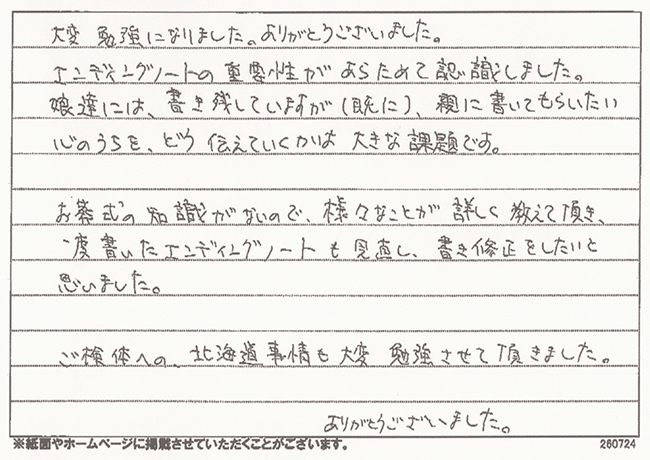 大変 勉強になりました。ありがとうございました。
エンディングノートの重要性があらためて認識しました。
娘達には、書き残していますが(既に)、親に書いてもらいたい
心のうちを、どう伝えていくかは大きな課題です。
お葬式の知識がないので、様々なことが詳しく教えて頂き、
一度書いたエンディングノートも見直し、書き修正をしたいと
思いました。
ご検体への、北海道事情も大変 勉強させて頂きました。
ありがとうございました。
※紙面やホームページに掲載させていただくことがございます。
260724